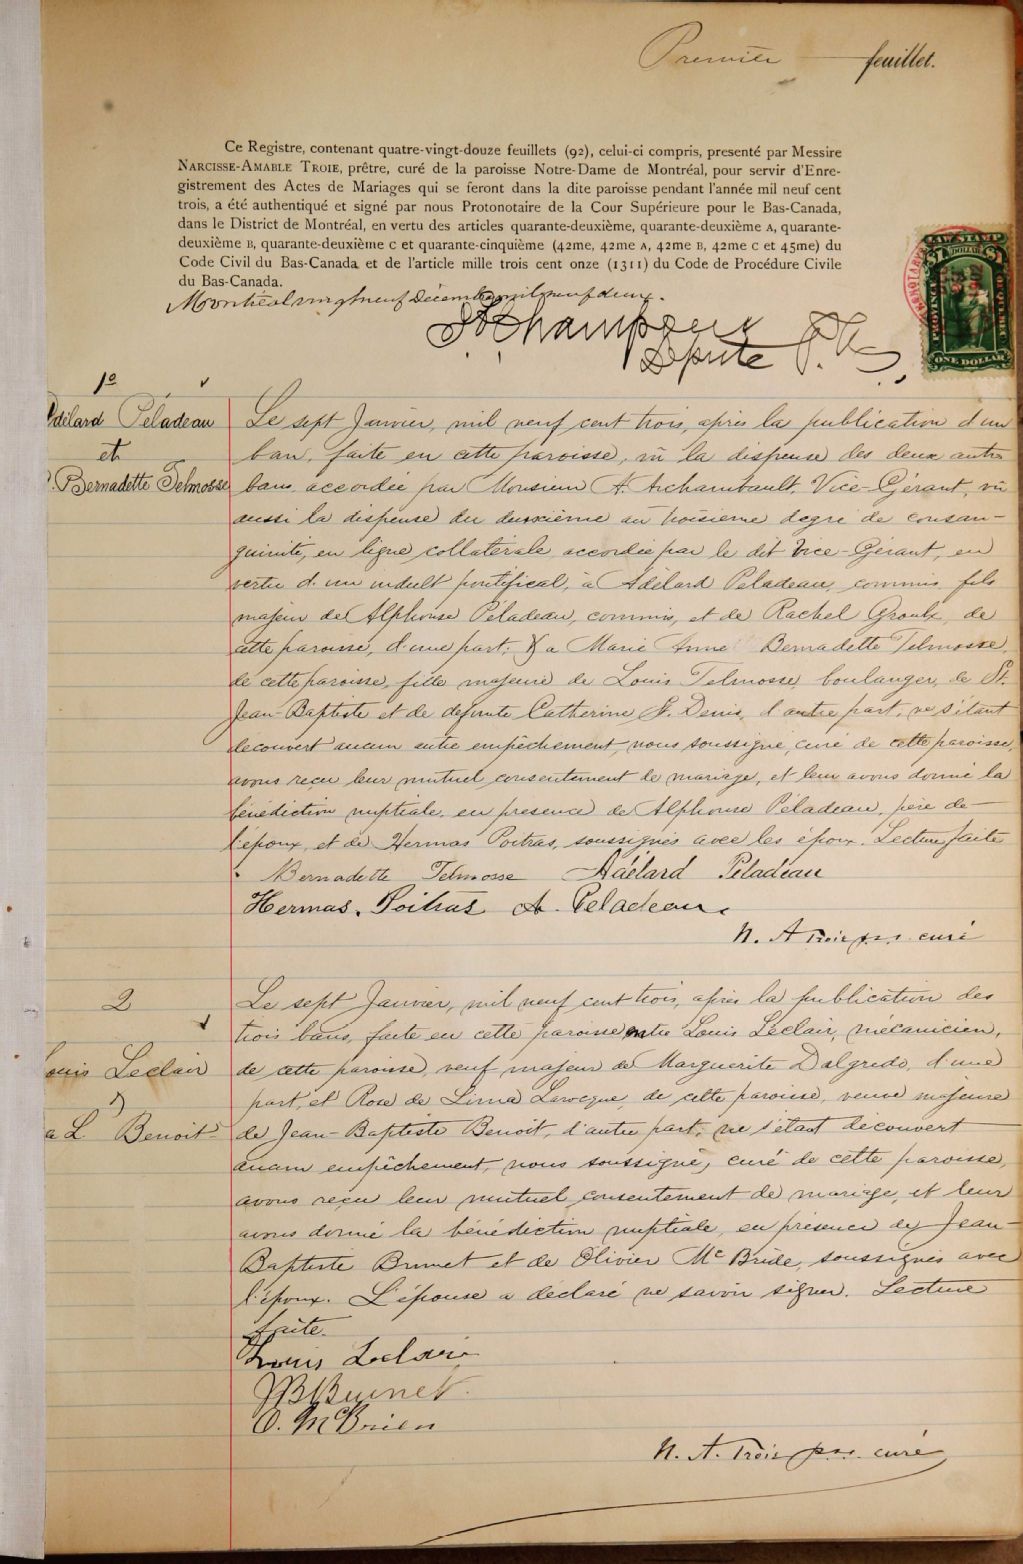 Premier feuillet.
Ce Registre, contenant quatre-vingt-douze feuillets (92), celui-ci compris, presenté par Messire
NARCISSE-AMABLE TROIE, prêtre, curé de la paroisse Notre-Dame de Montréal, pour servir d'Enre-
gistrement des Actes de Mariages qui se feront dans la dite paroisse pendant l'année mil neuf cent
trois, a été authentiqué et signé par nous Protonotaire de la Cour Supérieure pour le Bas-Canada,
dans le District de Montréal, en vertu des articles quarante-deuxième, quarante-deuxième A, quarante-
deuxième B, quarante-deuxième C et quarante-cinquième (42me, 42me A, 42me B, 42me C et 45me) du
Code Civil du Bas-Canada et de l'article mille trois cent onze (1311) du Code de Procédure Civile
du Bas-Canada.
Montréal vingt neuf Décembre mil neuf deux.
Député P.
LAW STAMP
$1 DOLLAR
PROVINCE OF QUEBEC
ONE DOLLAR
1º
Adélard Péladeau
et
Bernadette Telmosse
Le sept Janvier, mil neuf cent trois, après la publication d'un
ban, faite en cette paroisse, vû la dispense des deux autres
bans accordée par Monsieur A. Archambault, Vice-Gérant, vû
aussi la dispense du deuxième au troisième degré de consan-
guinité, en ligne collatérale accordée par le dit Vice-Gérant, en
vertu d'un indult pontifical, à Adélard Péladeau, commis, fils
majeur de Alphonse Péladeau, commis, et de Rachel Groulx, de
cette paroisse, d'une part; & a Marie Anne Bernadette Telmosse,
de cette paroisse, fille majeure de Louis Telmosse, boulanger, de St.
Jean-Baptiste et de defunte Catherine St. Denis, d'autre part, ne s'étant
découvert aucun autre empêchement, nous, soussigné, curé de cette paroisse,
avons reçu leur mutuel consentement de mariage, et leur avons donné la
bénédiction nuptiale, en presence de Alphonse Péladeau, père de
l'époux, et de Hermas Poitras, soussignés avec les époux. Lecture faite
Bernadette Telmosse Adélard Péladeau
Hermas. Poitras A. Peladeau
N. A Troie ptre curé
2
Louis Leclair
&
L. Benoit
Le sept Janvier, mil neuf cent trois, après la publication des
trois bans, faite en cette paroisse entre Louis Leclair, mécanicien,
de cette paroisse, veuf majeur de Marguerite Dalgredo, d'une
part, et Rose de Lima Larocque, de cette paroisse, veuve majeure
de Jean-Baptiste Benoit, d'autre part, ne s'étant découvert
aucun empêchement, nous soussigné, curé de cette paroisse,
avons reçu leur mutuel consentement de mariage, et leur
avons donné la bénédiction nuptiale, en présence de Jean-
Baptiste Brunet et de Olivier Mc Bride, soussignés avec
l'époux. L'épouse a déclaré ne savoir signer. Lecture
faite.
Louis Leclair
JB Brunet.
O. McBrien
N. A. Troie ptre curé